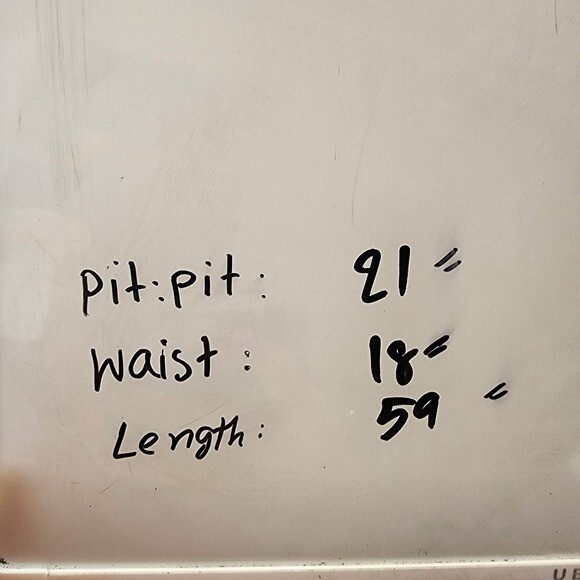 pit:pit: 21"
waist: 18"
Length: 59"